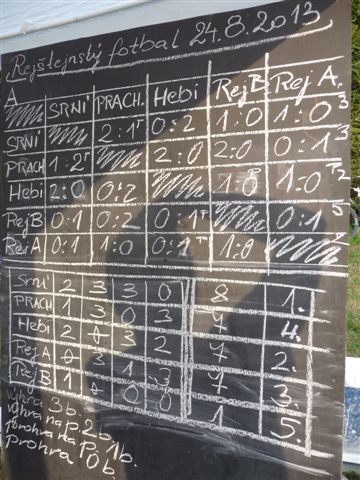 Rejštejnský fotbal 24.8.2013
A SRNÍ PRACH. Hebi RejB Rej A.
SRNÍ 2:1ᵀ 0:2 1:0 1:0 3
PRACH 1:2ᵀ 2:0 2:0 0:1 3
Hebi 2:0 0:2 1:0ᴾ 1:0ᵀ 2
RejB 0:1 0:2 0:1ᴾ 0:1 5
Rej A 0:1 1:0 0:1ᵀ 1:0 2
Srní 2 3 3 0 8 1.
PRACH 1 3 0 3 7 4.
Hebi 2 0 3 2 7 2.
Rej A 0 3 1 3 7 3.
Rej B 1 0 0 0 1 5.
výhra 3b.
výhra na p. 2b.
prohra na p. 1b.
prohra 0b.